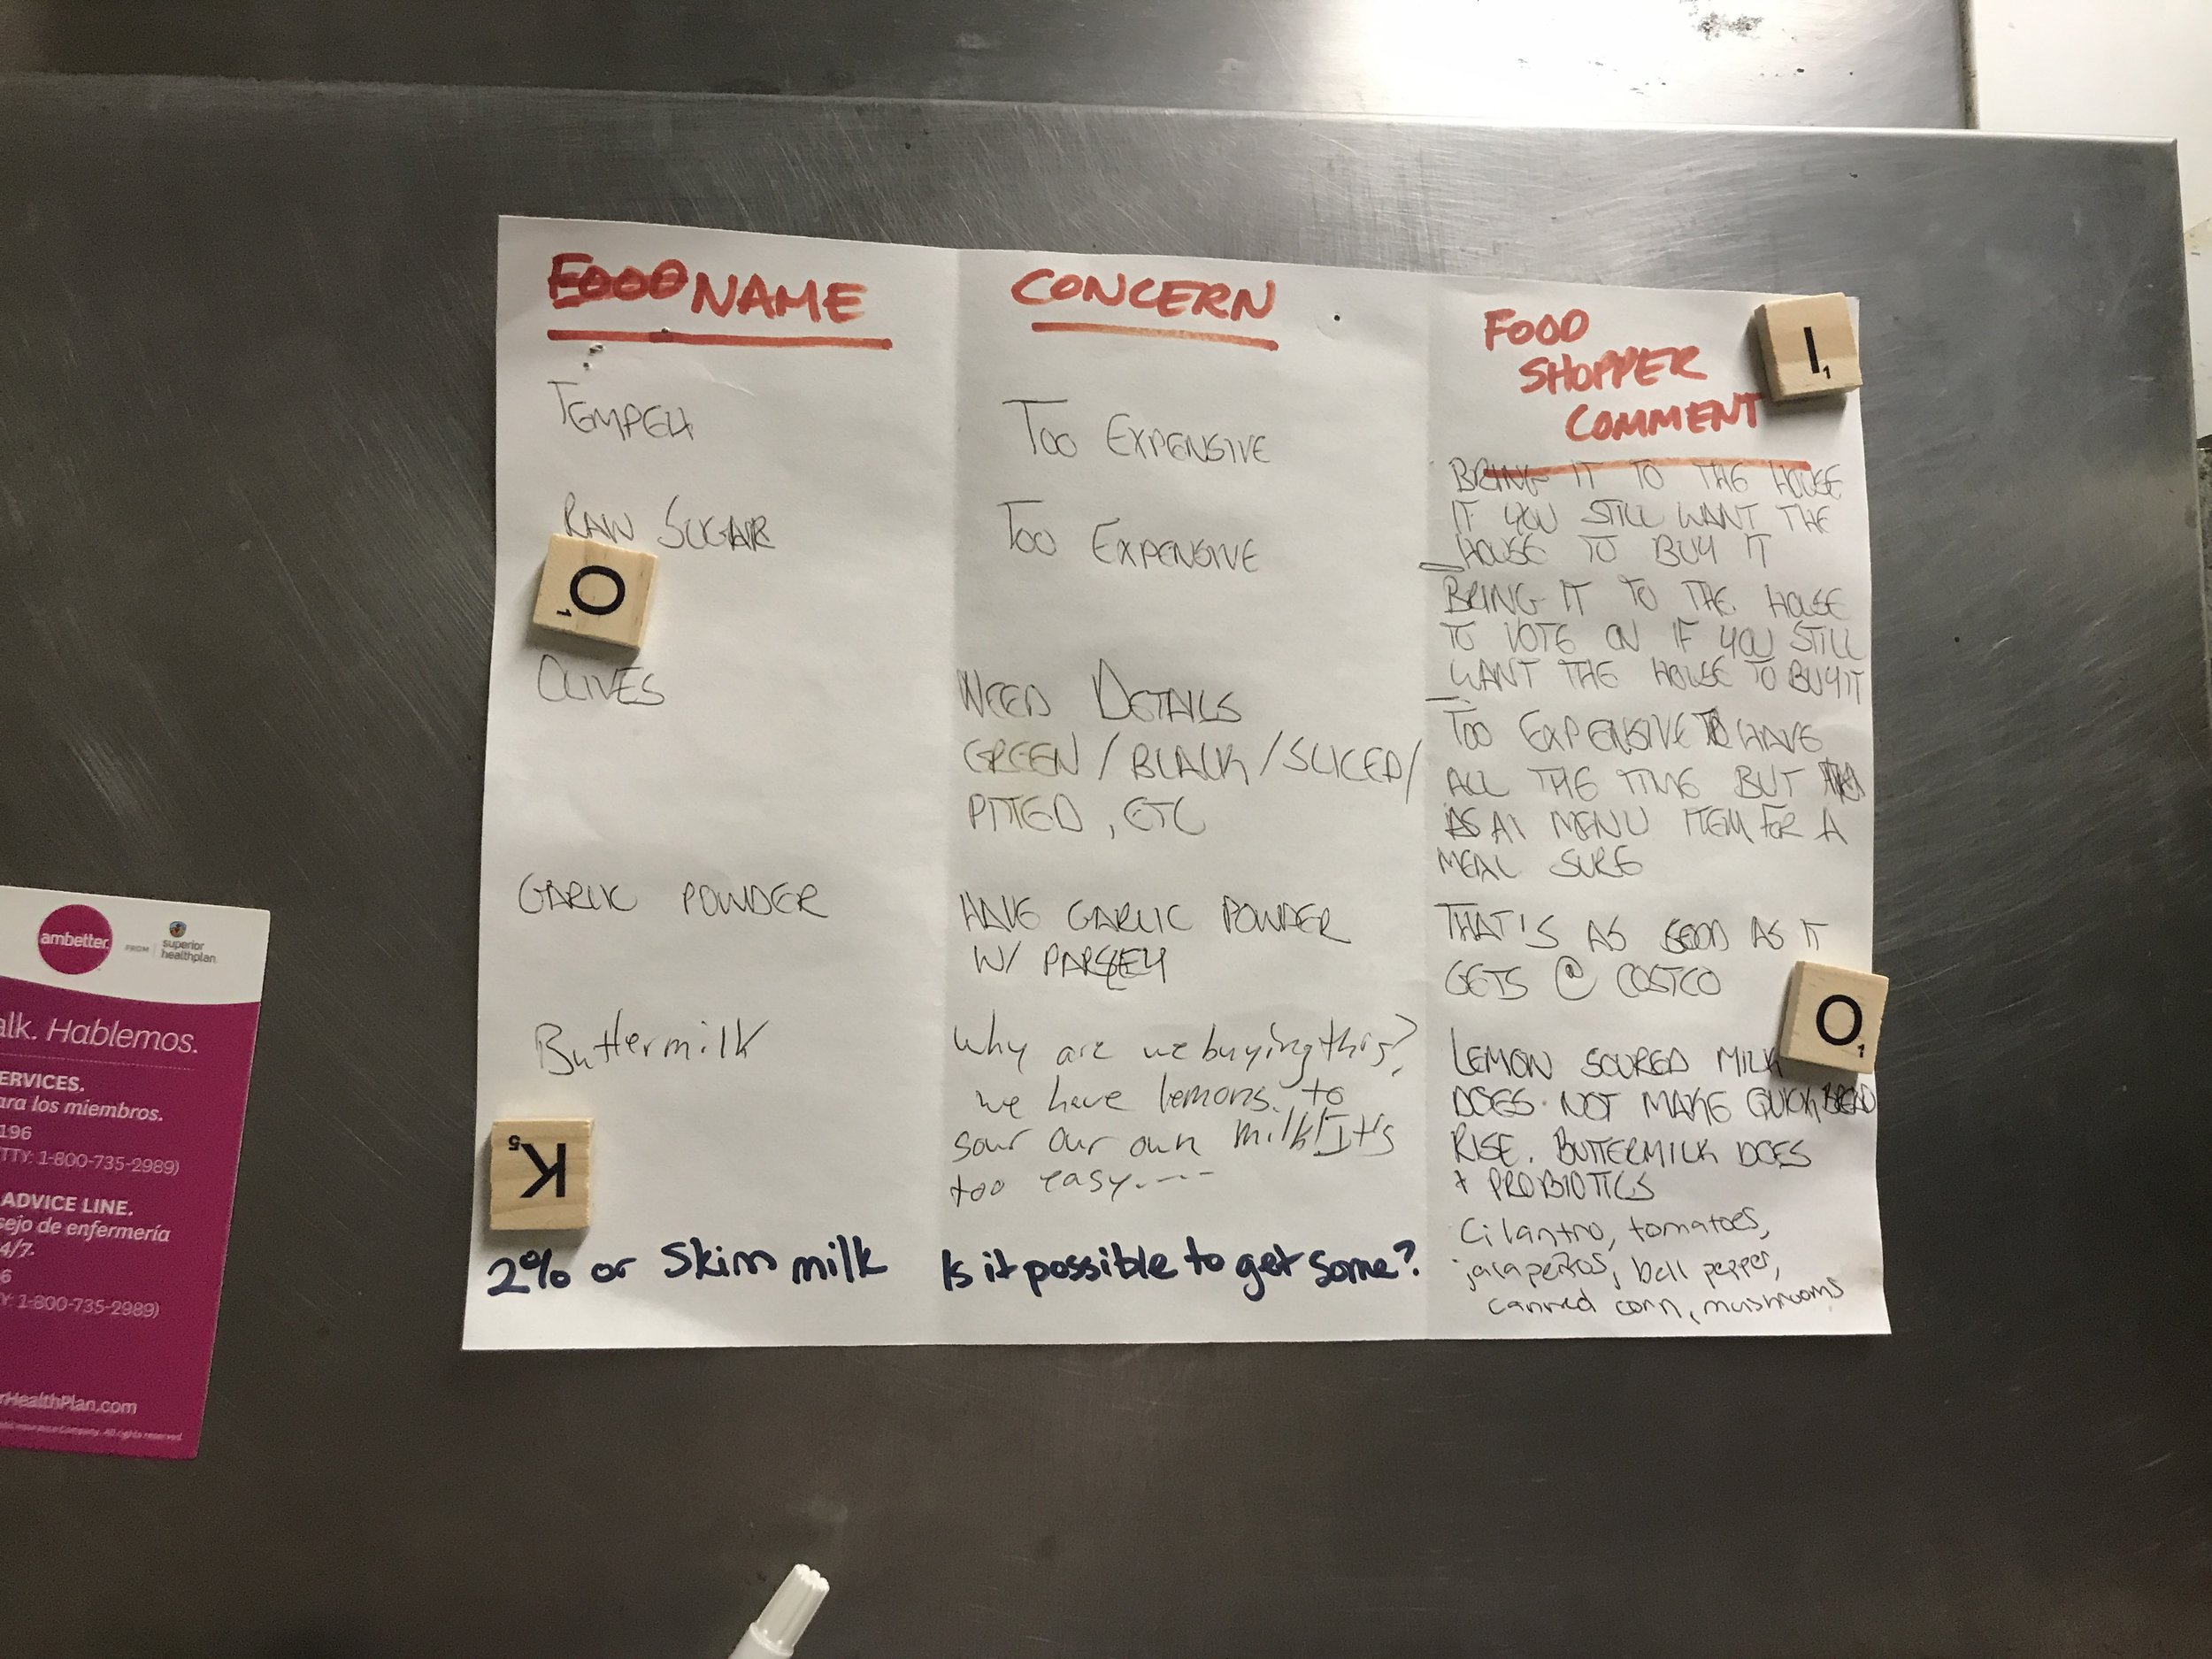 FOOD NAME
TEMPEH
RAW SUGAR
OLIVES
GARLIC POWDER
Buttermilk
2% or Skim milk
CONCERN
TOO EXPENSIVE
TOO EXPENSIVE
NEED DETAILS
GREEN / BLACK / SLICED /
PITTED, ETC
HAVE GARLIC POWDER
W/ PARSLEY
Why are we buying this?
we have lemons to
sour our own milk! It's
too easy....
Is it possible to get some?
FOOD
SHOPPER
COMMENT
BRING IT TO THE HOUSE
IF YOU STILL WANT THE
HOUSE TO BUY IT
BRING IT TO THE HOUSE
TO VOTE ON IF YOU STILL
WANT THE HOUSE TO BUY IT
TOO EXPENSIVE TO HAVE
ALL THE TIME BUT
AS A MENU ITEM FOR A
MEAL SURE
THAT'S AS GOOD AS IT
GETS @ COSTCO
LEMON SOURED MILK
DOES NOT MAKE QUICK BREAD
RISE. BUTTERMILK DOES
+ PROBIOTICS
Cilantro, tomatoes,
jalapeños, bell pepper,
canned corn, mushrooms
I1
O1
O1
K5
ambetter.
FROM
superior
healthplan
alk. Hablemos.
ERVICES.
ara los miembros.
196
TTY: 1-800-735-2989)
ADVICE LINE.
sejo de enfermería
4/7.
6
Y: 1-800-735-2989)
rHealthPlan.com
Insurance Company. All rights reserved.